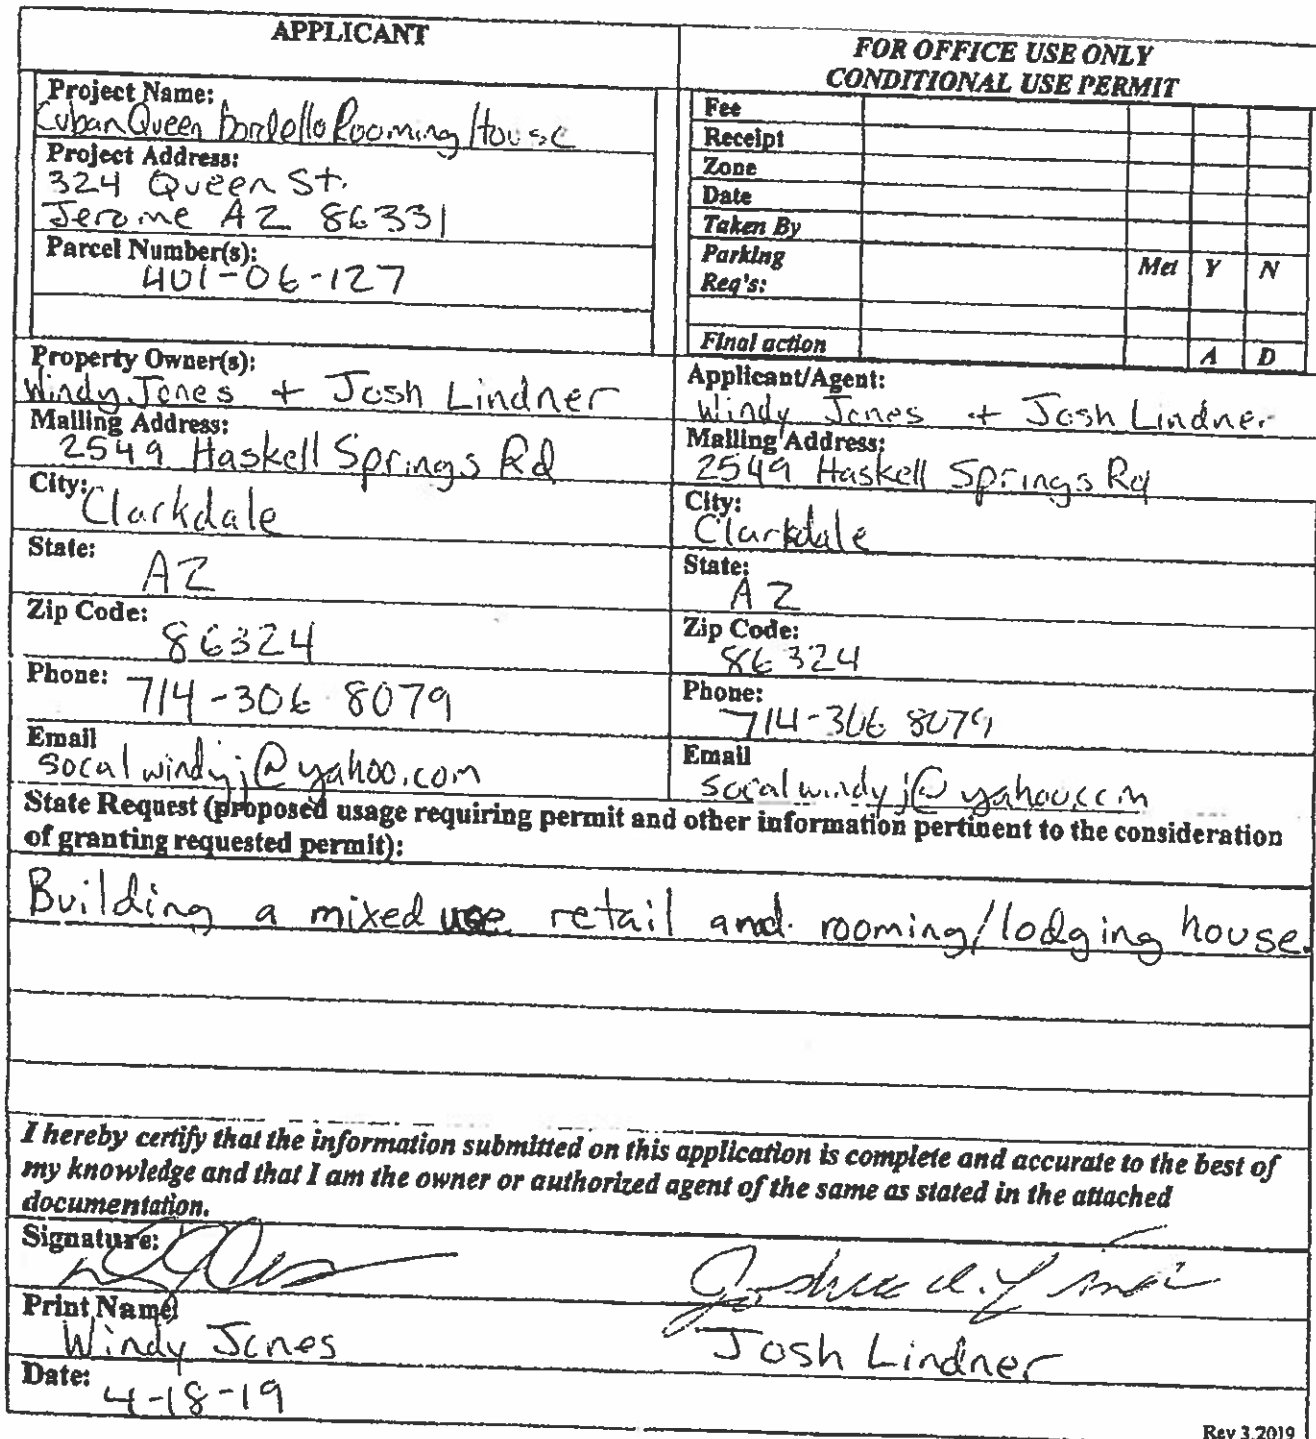 APPLICANT
Project Name:
Cuban Queen Bordello Rooming House
Project Address:
324 Queen St.
Jerome AZ 86331
Parcel Number(s):
401-06-127
FOR OFFICE USE ONLY
CONDITIONAL USE PERMIT
Fee
Receipt
Zone
Date
Taken By
Parking Met Y N
Req's:
Final action A D
Property Owner(s):
Windy Jones + Josh Lindner
Mailing Address:
2549 Haskell Springs Rd
City:
Clarkdale
State:
AZ
Zip Code:
86324
Phone: 714-306 8079
Email
socalwindyj@yahoo.com
Applicant/Agent:
Windy Jones + Josh Lindner
Mailing Address:
2549 Haskell Springs Rd
City:
Clarkdale
State:
AZ
Zip Code:
86324
Phone:
714-306 8079
Email
socalwindyj@yahoo.com
State Request (proposed usage requiring permit and other information pertinent to the consideration
of granting requested permit):
Building a mixed use retail and rooming/lodging house.
I hereby certify that the information submitted on this application is complete and accurate to the best of
my knowledge and that I am the owner or authorized agent of the same as stated in the attached
documentation.
Signature:
Print Name:
Windy Jones Josh Lindner
Date:
4-18-19
Rev 3.2019